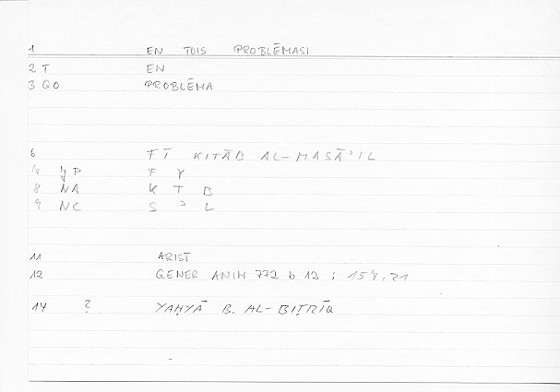 1 EN TOIS PROBLĒMASI
2 T EN
3 QO PROBLĒMA
6 FĪ KITĀB AL-MASĀʾIL
P F Y
8 NA K T B
9 NC S ʾ L
11 ARIST
12 GENER ANIM 772 b 12 ; 158,21
14 ? YAḤYĀ B. AL-BIṬRĪQ